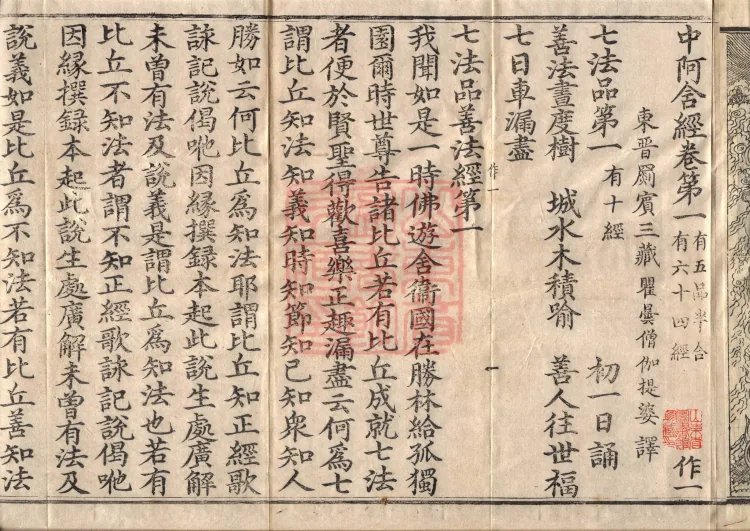 中阿含經卷第一 有五品半合有六十四經 作一
東晉罽賓三藏瞿曇僧伽提婆 譯
七法品第一 有十經 初一日誦
善法晝度樹 城水木積喻 善人往世福
七日車漏盡
作一 一
七法品善法經第一
我聞如是一時佛遊舍衞國在勝林給孤獨
園爾時世尊告諸比丘若有比丘成就七法
者便於賢聖得歡喜樂正趣漏盡云何爲七
謂比丘知法知義知時知節知己知衆知人
勝如云何比丘爲知法耶謂比丘知正經歌
詠記說偈咃因緣撰録本起此說生處廣解
未曾有法及說義是謂比丘爲知法也若有
比丘不知法者謂不知正經歌詠記說偈咃
因緣撰録本起此說生處廣解未曾有法及
說義如是比丘爲不知法若有比丘善知法